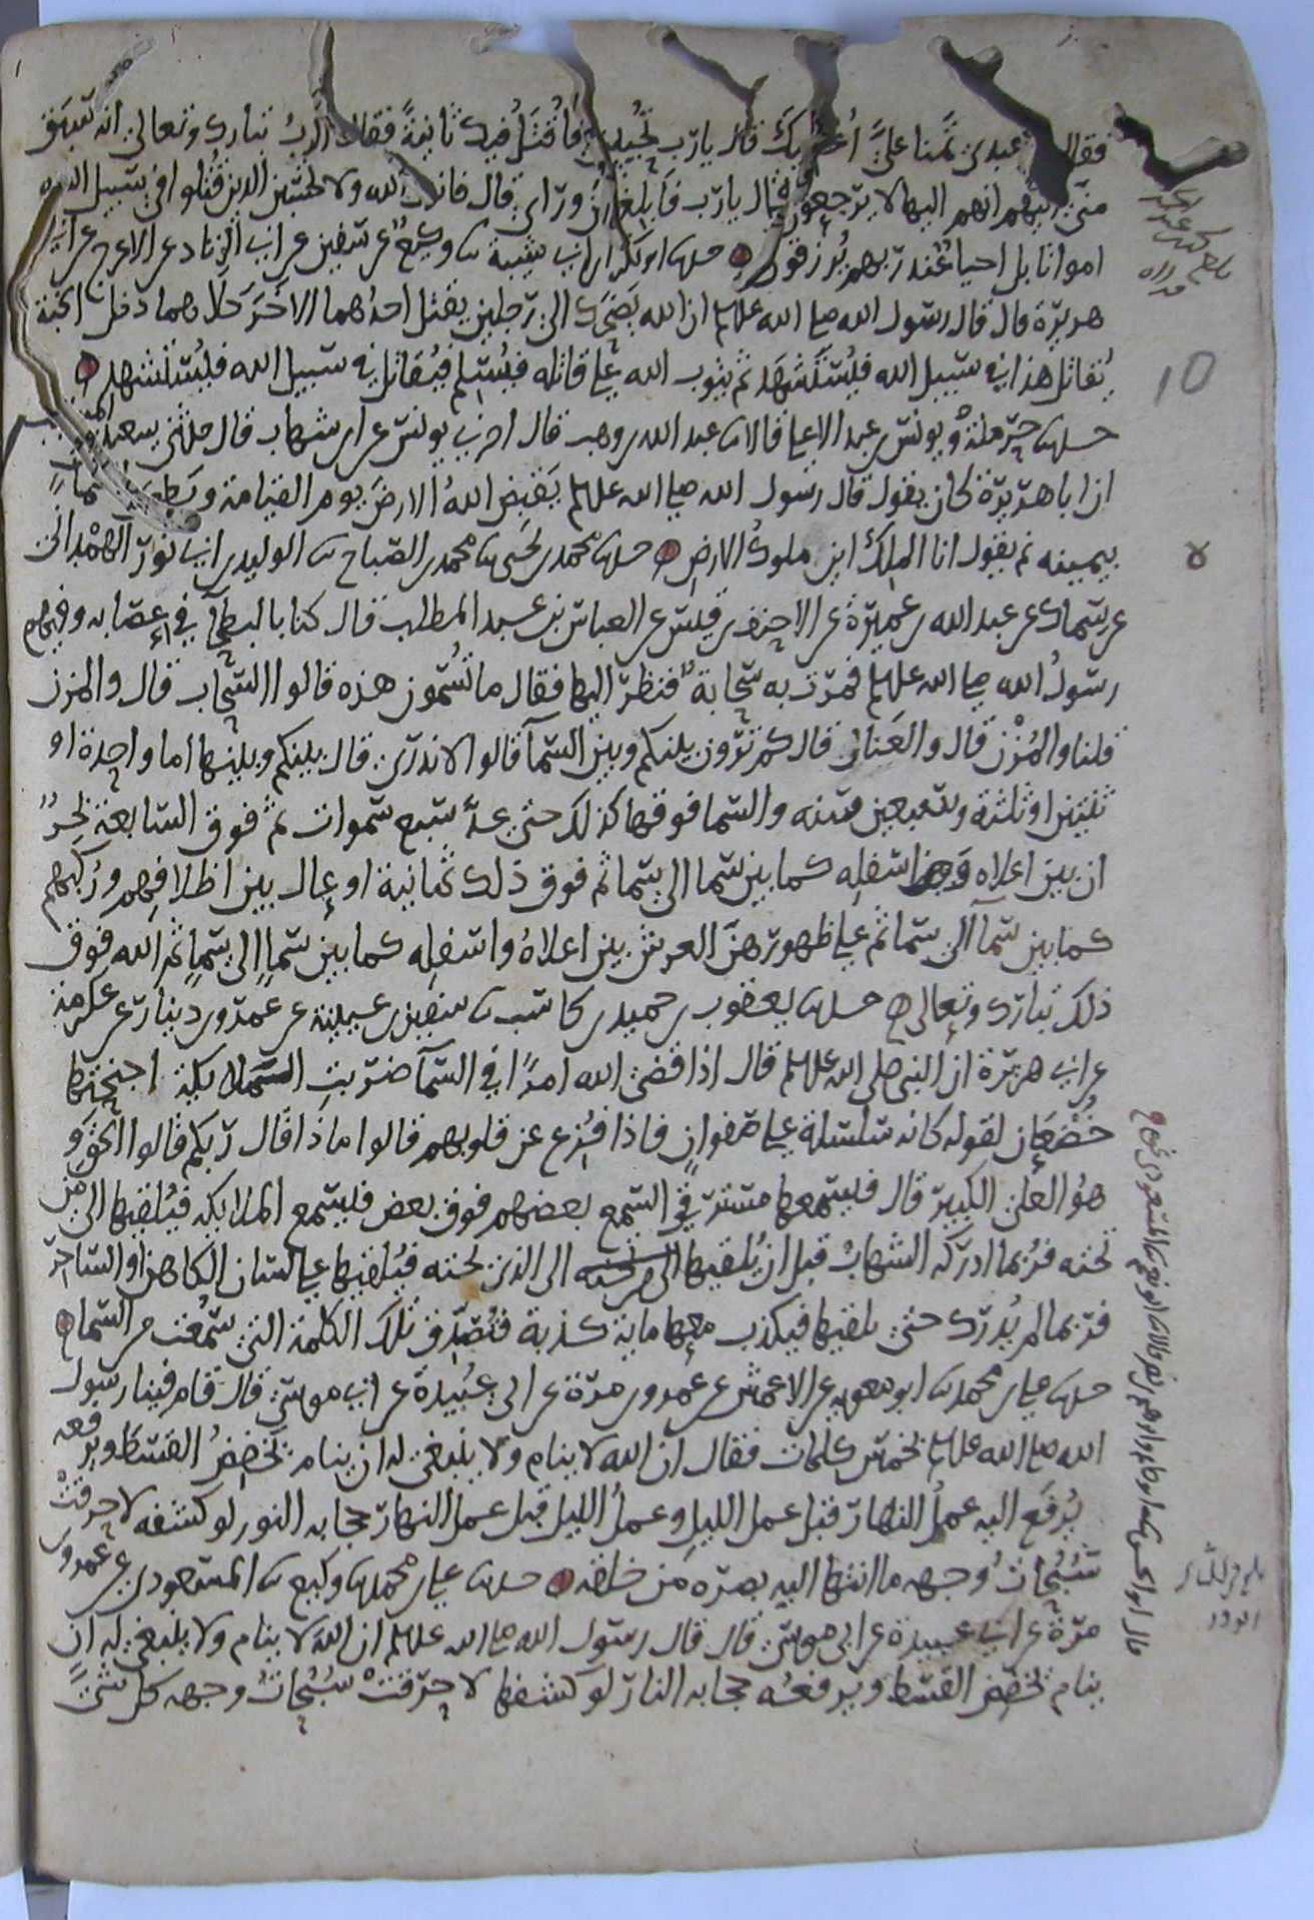 فقال عبدي تمنا عليَّ أعطك قال يا رب تحييني فأُقتَلُ فيك ثانيةً فقال الربُ تبارك وتعالى انه سبق
مني اليهم انهم اليها لا يرجعون قال يا رب فابلغ من ورائي قال فانزل الله ولا تحسبن الذين قتلوا في سبيل الله
امواتا بل احيا عند ربهم يُرزقون حدثنا ابو بكر بن ابي شيبة ثنا وكيع عن سفين عن ابي الزناد عن الاعرج عن ابي
هريرة قال قال رسول الله صلى الله عليه وسلم ان الله يضحك الى رجلين يقتل احدهما الاخَرَ كلاهما دخل الجنة
يُقاتل هذا في سبيل الله فيُستشهَد ثم يتوب الله على قاتله فيُسلِم فيُقاتل في سبيل الله فيُستشهد
حدثنا حرملةُ ويونس بن عبد الاعلى قالا ثنا عبد الله بن وهب قال اخبرني يونس عن ابن شهاب قال حدثني سعيد بن المسيب
ان ابا هريرة كان يقول قال رسول الله صلى الله عليه وسلم يَقبِض اللهُ الارضَ يوم القيامة ويطوي السماءَ
بيمينه ثم يقول انا الملِك اين ملوكُ الارض حدثنا محمد بن يحيى ثنا محمد بن الصباح ثنا الوليد بن ابي ثور الهَمْداني
عن سماك عن عبد الله بن عميرة عن الاحنف بن قيس عن العباس بن عبد المطلب قال كنا بالبطحآ في عصابه وفيهم
رسولُ الله صلى الله عليه وسلم فمرت به سحابةٌ فنظر اليها فقال ما تُسَمون هذه قالوا السحاب قال والمزن
قلنا والمُزْن قال والعَنان قال كم ترون بينكم وبين السمآ قالوا لا ندري قال بينكم وبينها اما واحدة او
ثنتين او ثلثة وسبعين سنه والسما فوقها كذلك حتى عدَّ سبع سموات ثم فوق السابعة بحرٌ
ان بين اعلاه واسفلِه كما بين سما الى سما ثم فوق ذلك ثمانية اوعال بين اظلافهم ورُكَبهم
كما بين سمآ الى سما ثم على ظهورهنَّ العرش بين اعلاهُ واسفلِه كما بين سماٍ الى سماٍ ثم الله فوق
ذلك تبارك وتعالى حدثنا يعقوب بن حميد بن كاسب ثنا سفين بن عيينة عن عَمرو بن دينار عن عكرمة
عن ابي هريرة ان النبي صلى الله عليه وسلم قال اذا قضى الله امراً في السمآ ضربت الملائكة اجنحتها
خُضْعَان لقوله كانه سلسلة على صفوانٍ فاذا فُزِّع عن قلوبهم قالوا ماذا قال ربكم قالوا الحقَّ و
هوُ العلى الكبير قال فيسمعها مسترق السمع بعضهم فوق بعض فيسمع الملائكه فيُلقيها الى من
تحته فرُبما ادركه الشهابُ قبل ان يُلقيها الى من تحته الى الذي تحته فيُلقيها على لسان الكاهن او الساحر
فربما لم يُدرَك حتى يلقيها فيكذب معها مايةَ كذبة فتُصَدَّق تلك الكلمة التي سُمعت من السما
حدثنا علي بن محمد ثنا ابو معويه عن الاعمش عن عمرو بن مرة عن ابي عُبيدة عن ابي موسى قال قام فينا رسول
الله صلى الله عليه وسلم بخمس كلمات فقال ان الله لا ينام ولا ينبغي له ان ينام يَخفِضُ القسط ويرفعه
يُرفَع اليه عملُ النهار قبل عمل الليل وعملُ الليل قبل عمل النهار حجابه النور لو كشفه لاحرقتْ
سُبُحاتُ وجهه ما انتهى اليه بصره من خلقه حدثنا علي بن محمد ثنا وكيع ثنا المسعودي عن عمرو بن
مرة عن ابي عبيدة عن ابي موسى قال قال رسول الله صلى الله عليه وسلم ان اللهَ لا ينام ولا ينبغي له ان
ينام يَخفِض القسط ويرفعُه حجابه النار لو كشفها لاحرقتْ سُبُحاتُ وجهه كل شئٍ
10